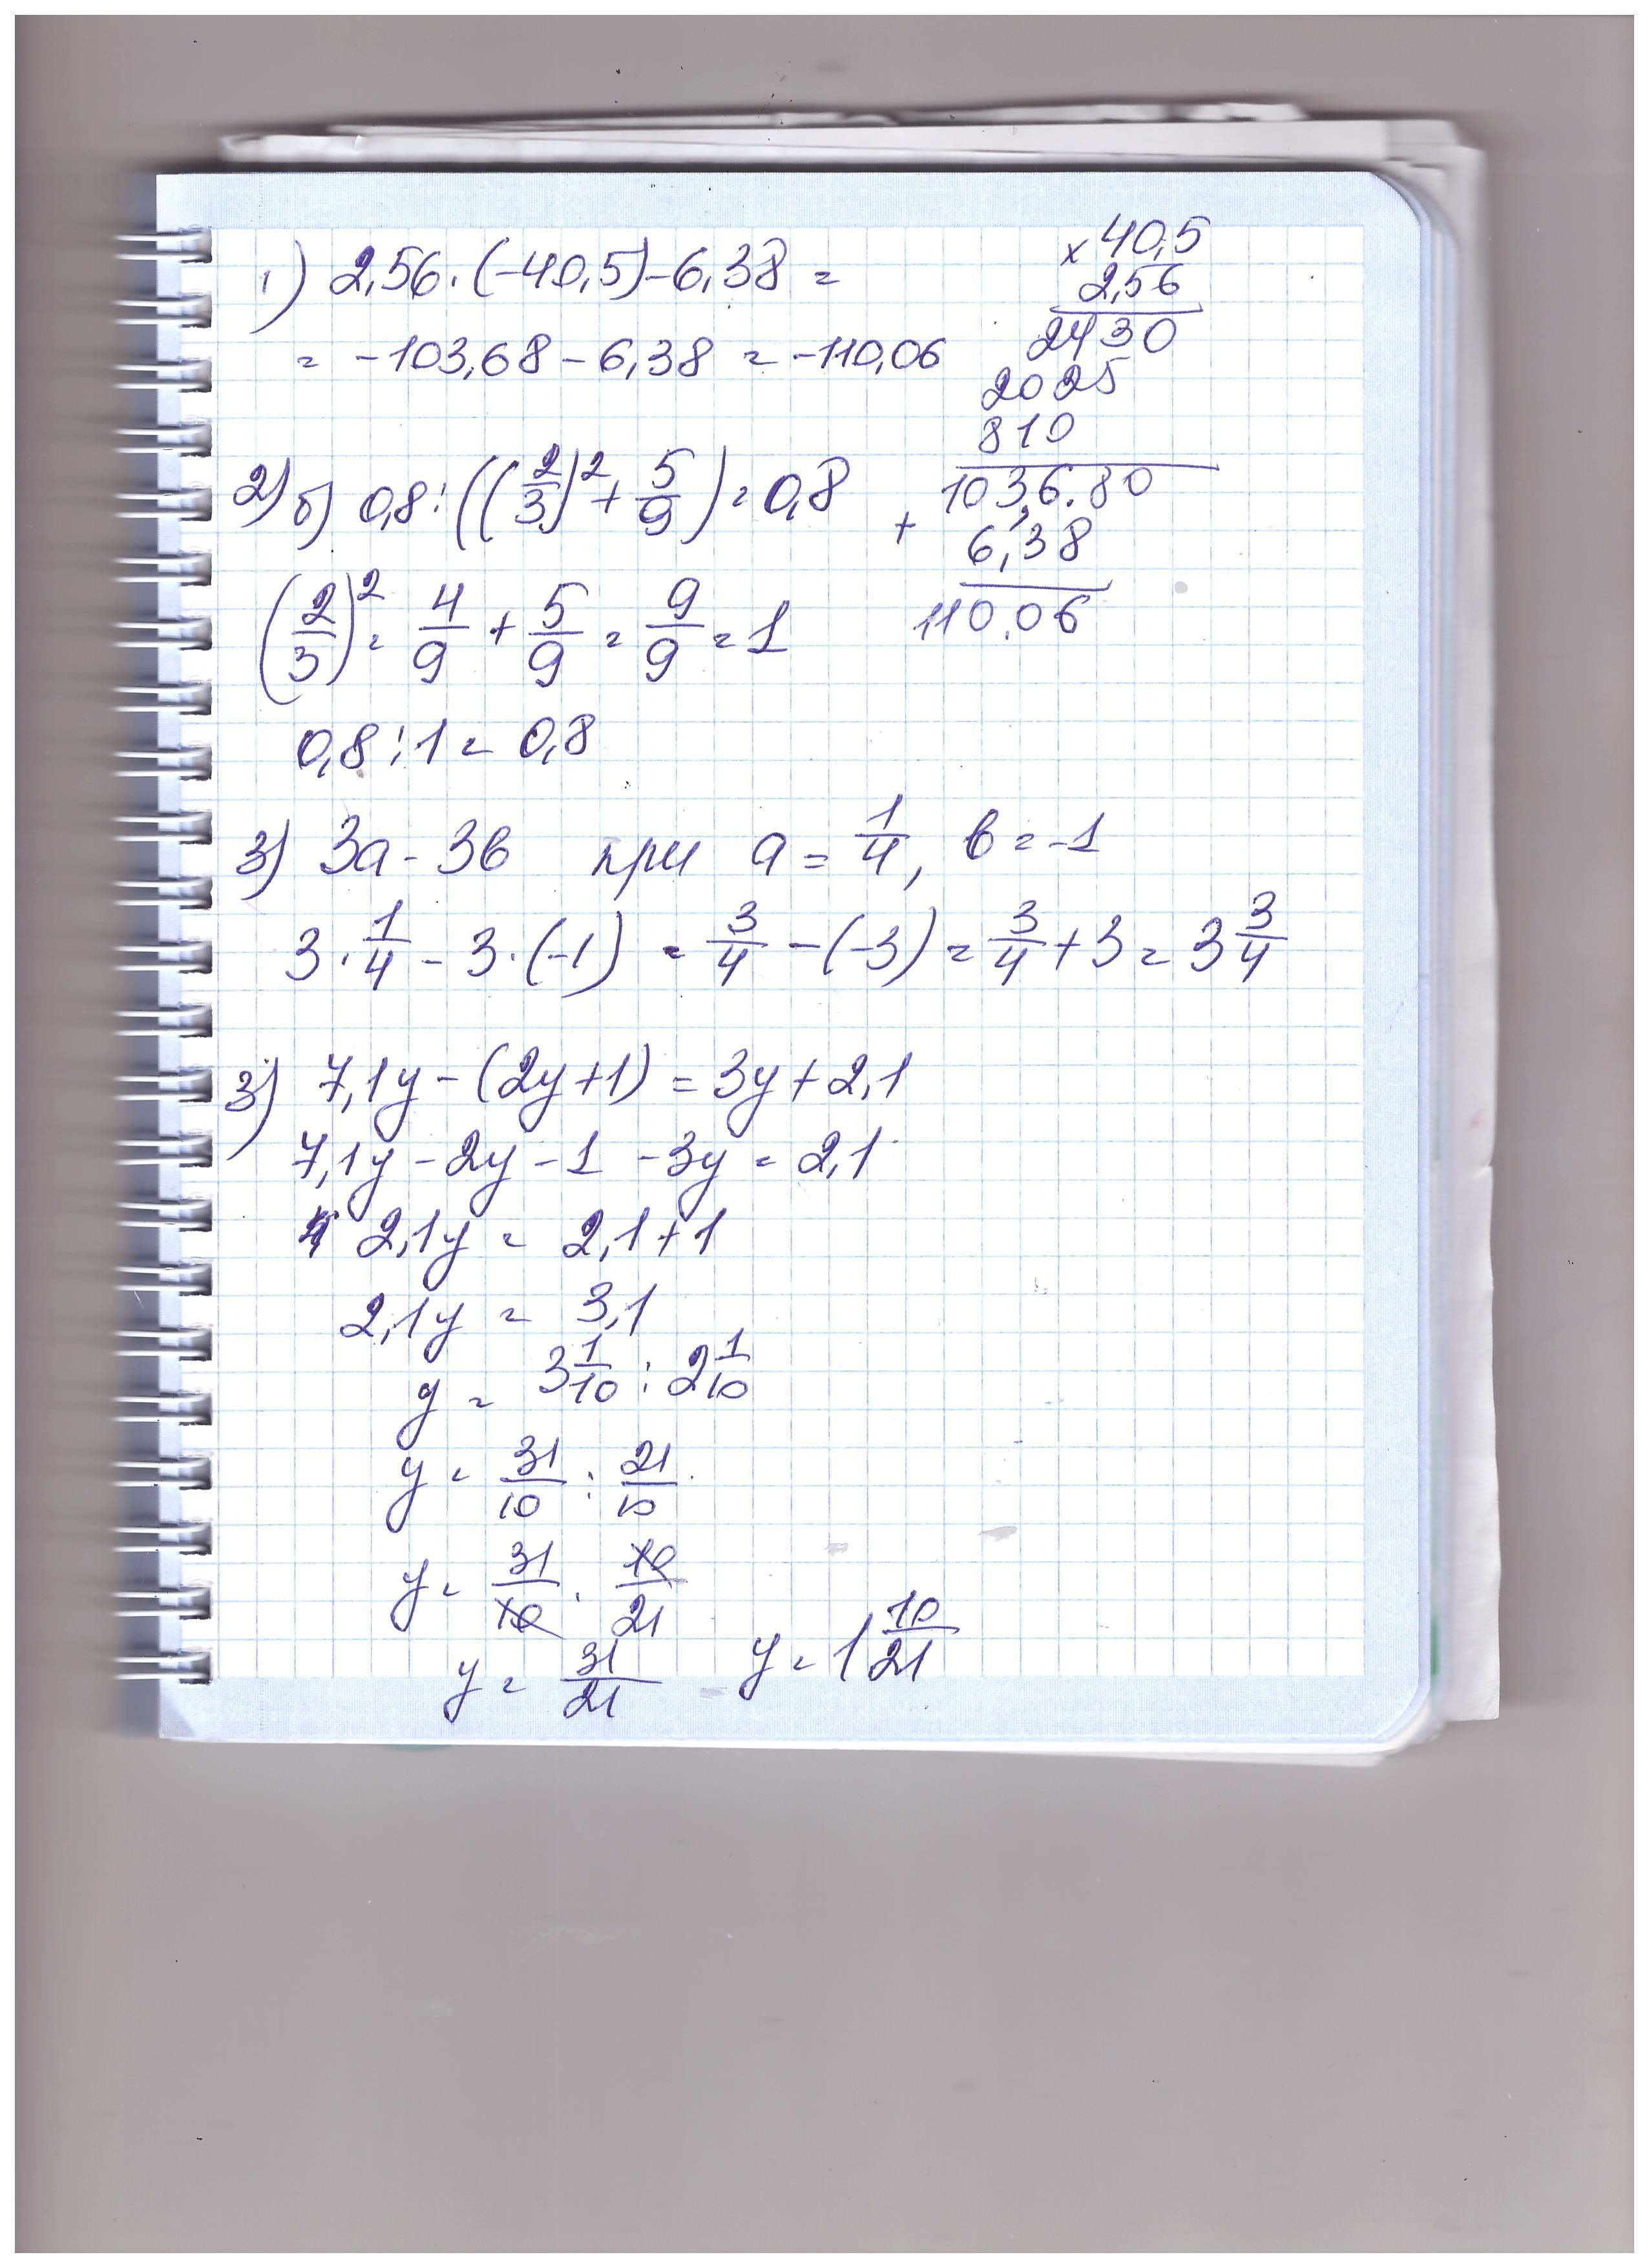 1) 2,56·(-40,5)-6,38 =
= -103,68 - 6,38 = -110,06
× 40,5
2,56
2430
2025
810
103,6.80
+ 6,38
110,06
2) б) 0,8:((2/3)²+5/9)=0,8
(2/3)² = 4/9 + 5/9 = 9/9 = 1
0,8:1 = 0,8
3) 3a - 3в при a = 1/4, в = -1
3·1/4 - 3·(-1) = 3/4 - (-3) = 3/4 + 3 = 3 3/4
3) 7,1y - (2y+1) = 3y + 2,1
7,1y - 2y - 1 - 3y = 2,1
2,1y = 2,1+1
2,1y = 3,1
y = 3 1/10 : 2 1/10
y = 31/10 : 21/10
y = 31/10 · 10/21
y = 31/21 y = 1 10/21